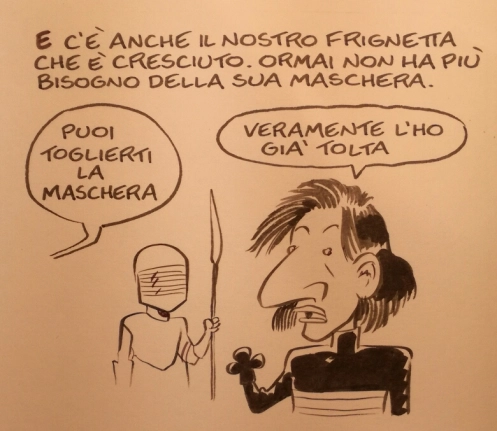 E C'È ANCHE IL NOSTRO FRIGNETTA
CHE È CRESCIUTO. ORMAI NON HA PIÙ
BISOGNO DELLA SUA MASCHERA.
PUOI
TOGLIERTI
LA
MASCHERA
VERAMENTE L'HO
GIA' TOLTA